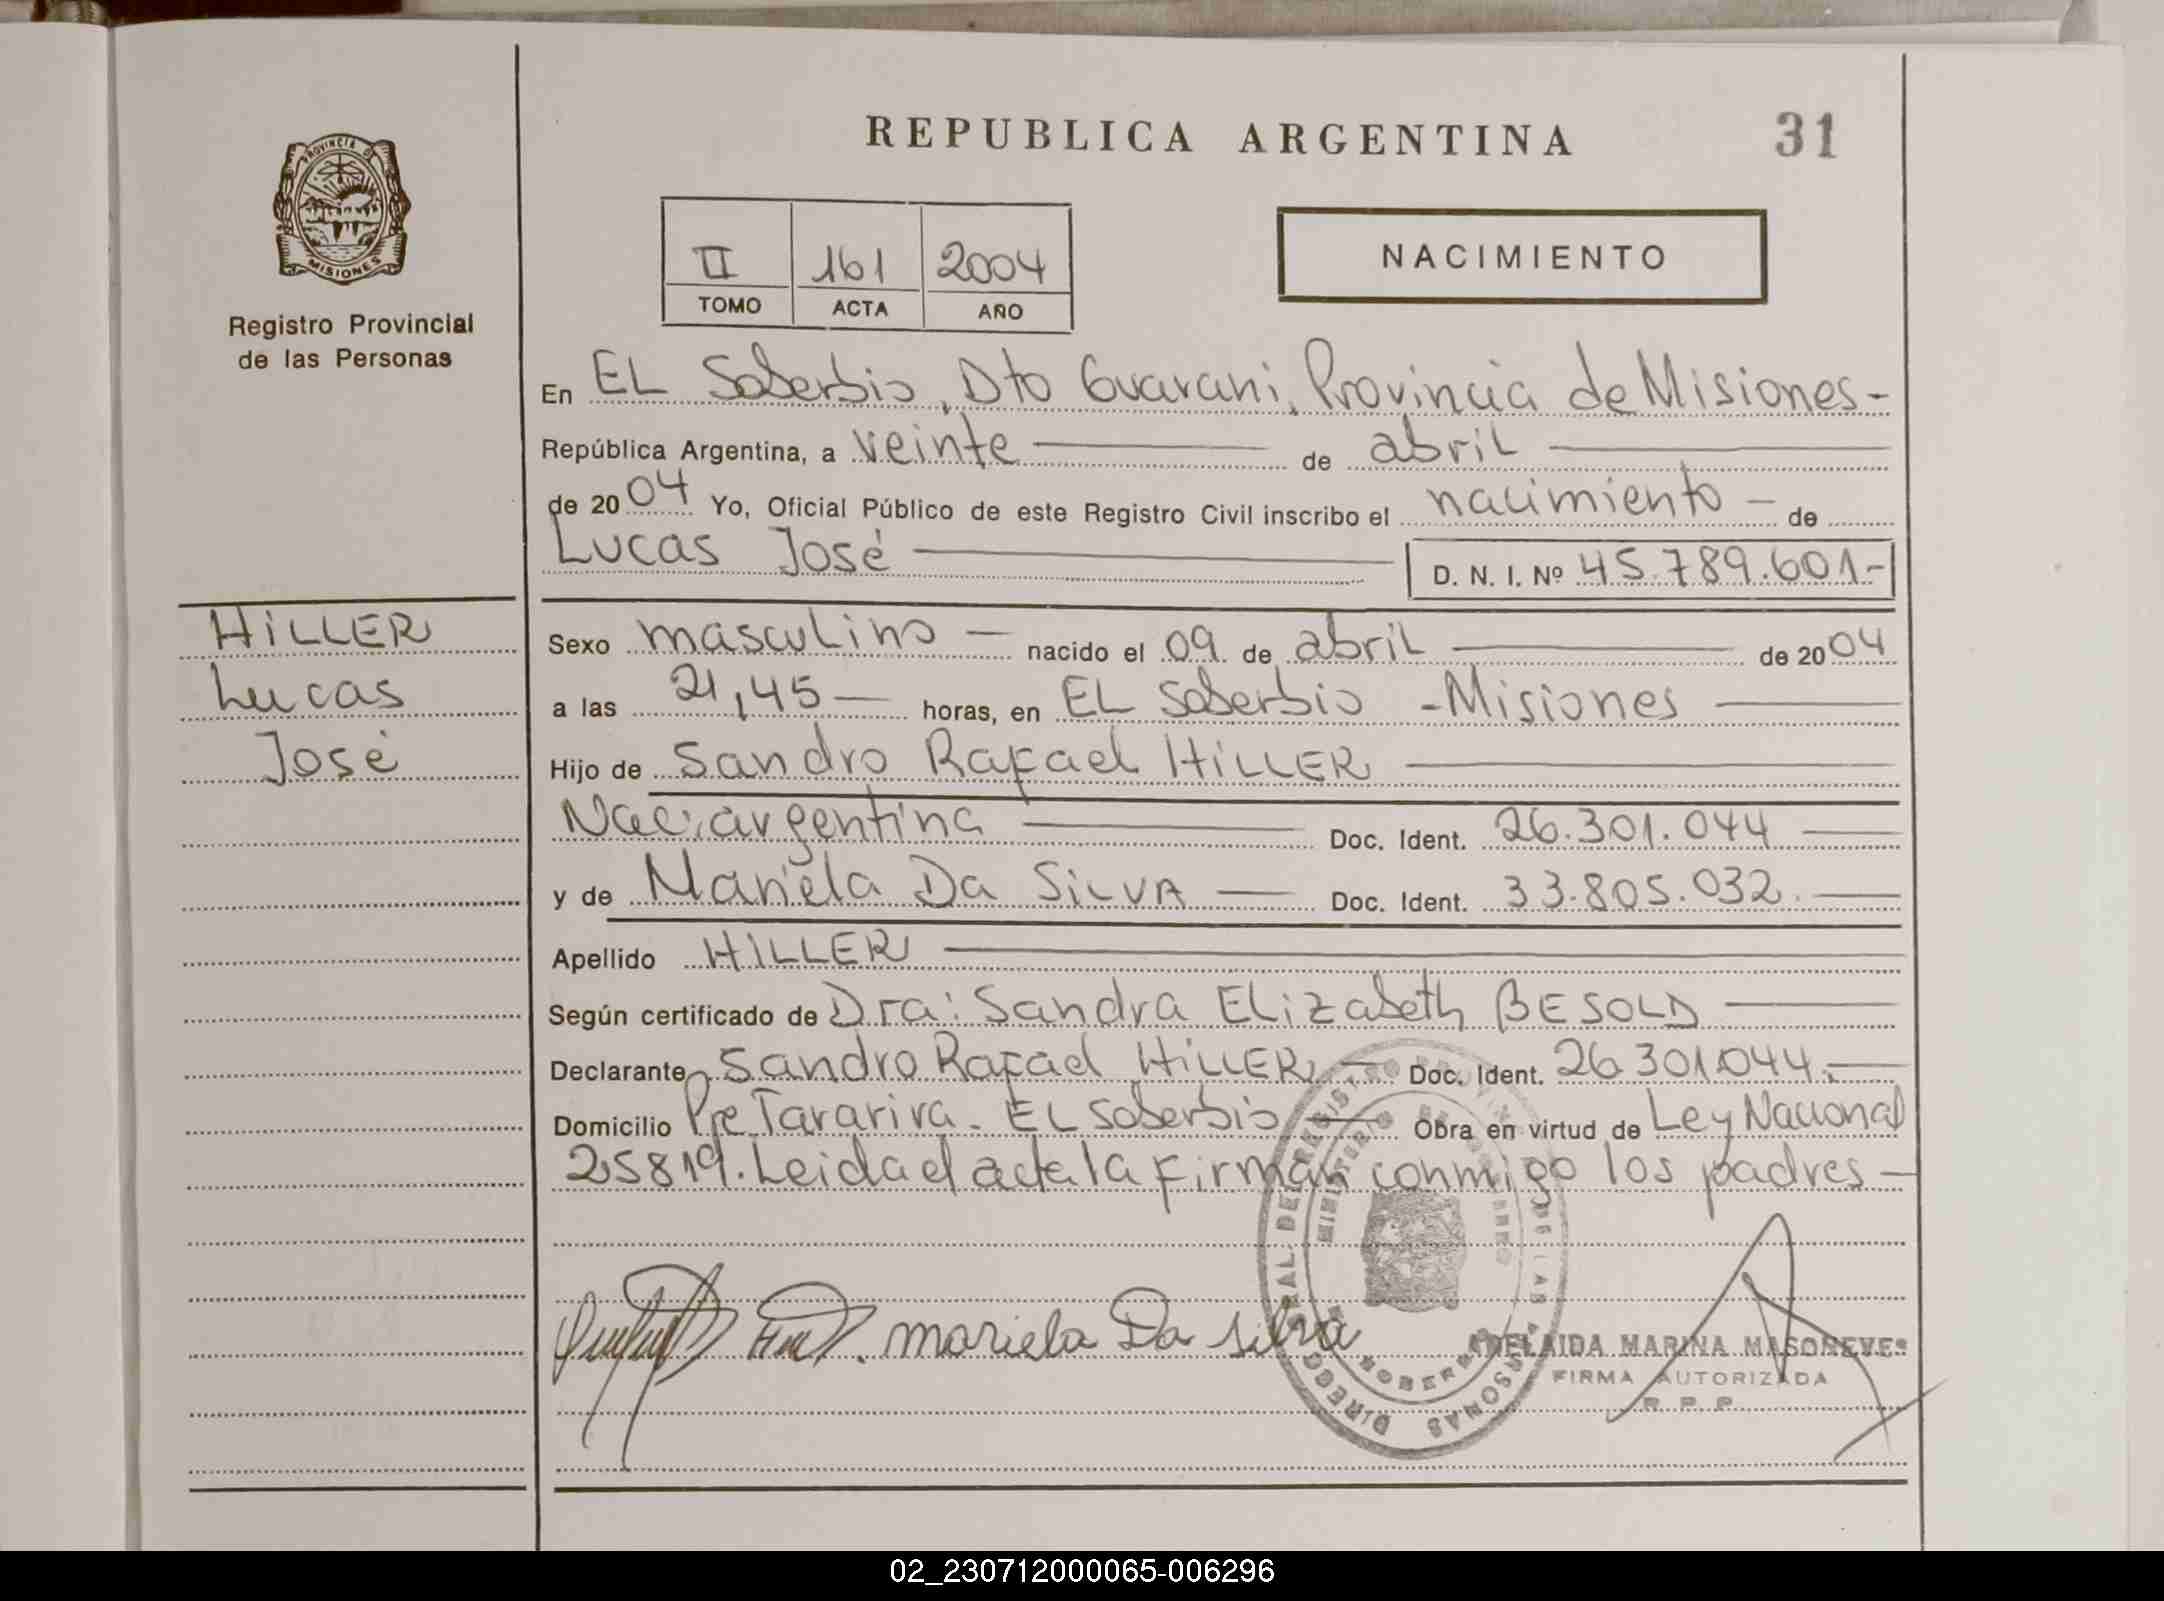 REPUBLICA ARGENTINA
31
PROVINCIA DE
MISIONES
Registro Provincial
de las Personas
II 161 2004
TOMO ACTA AÑO
NACIMIENTO
En EL Soberbio, Dto Guarani, Provincia de Misiones-
República Argentina, a veinte de abril
de 2004 Yo, Oficial Público de este Registro Civil inscribo el nacimiento - de
Lucas José D. N. I. Nº 45.789.601-
HILLER
Lucas
José
Sexo masculino - nacido el 09 de abril de 2004
a las 21,45 - horas, en EL Soberbio - Misiones
Hijo de Sandro Rafael HILLER
Nac: argentina Doc. Ident. 26.301.044
y de Mariela Da SILVA Doc. Ident. 33.805.032.
Apellido HILLER
Según certificado de Dra: Sandra Elizabeth BESOLD
Declarante Sandro Rafael HILLER Doc. Ident. 26.301.044.
Domicilio Pje Tarariva. EL Soberbio Obra en virtud de Ley Nacional
25819. Leida el acta la firman conmigo los padres -
mariela Da silva
ADELAIDA MARINA
FIRMA AUTORIZADA
R. P. P.
02_230712000065-006296